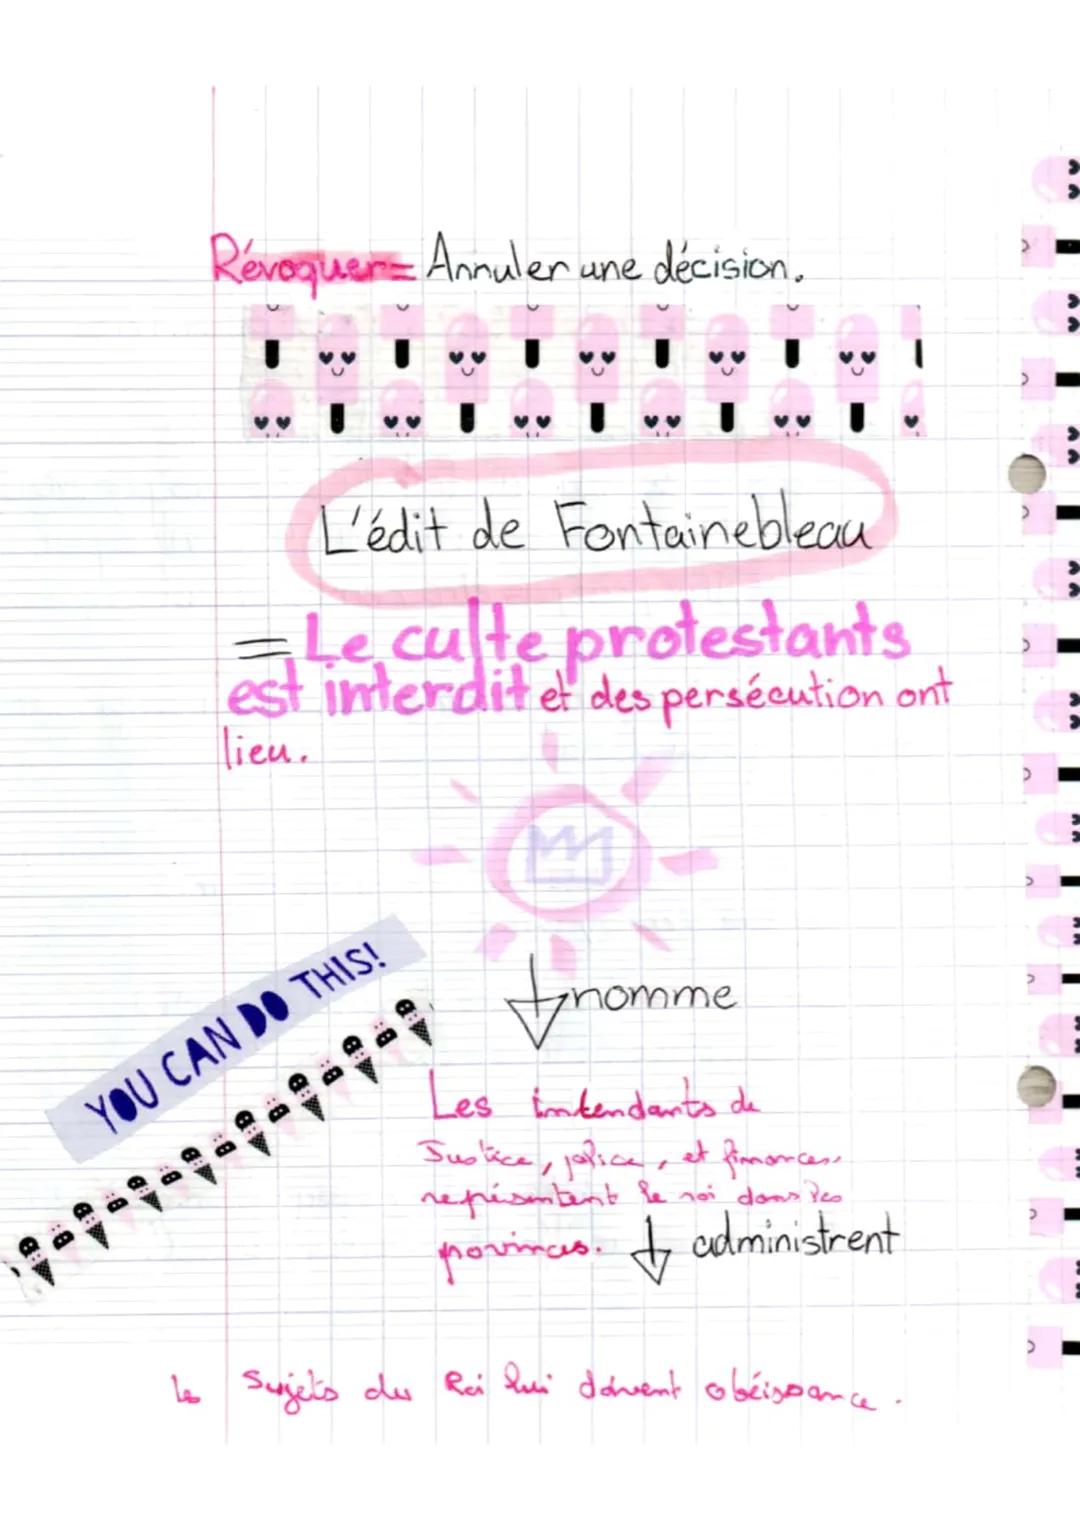 Révoquer= Annuler une décision.
L'édit de Fontainebleau
= Le culte protestants
est interdit et des persécution ont
lieu.
YOU CAN DO THIS!
nomme
Les intendants de
Justice, police, et finances,
représentent le roi dans les
provinces.
administrent
Les Sujets du Roi lui doivent obéissance.